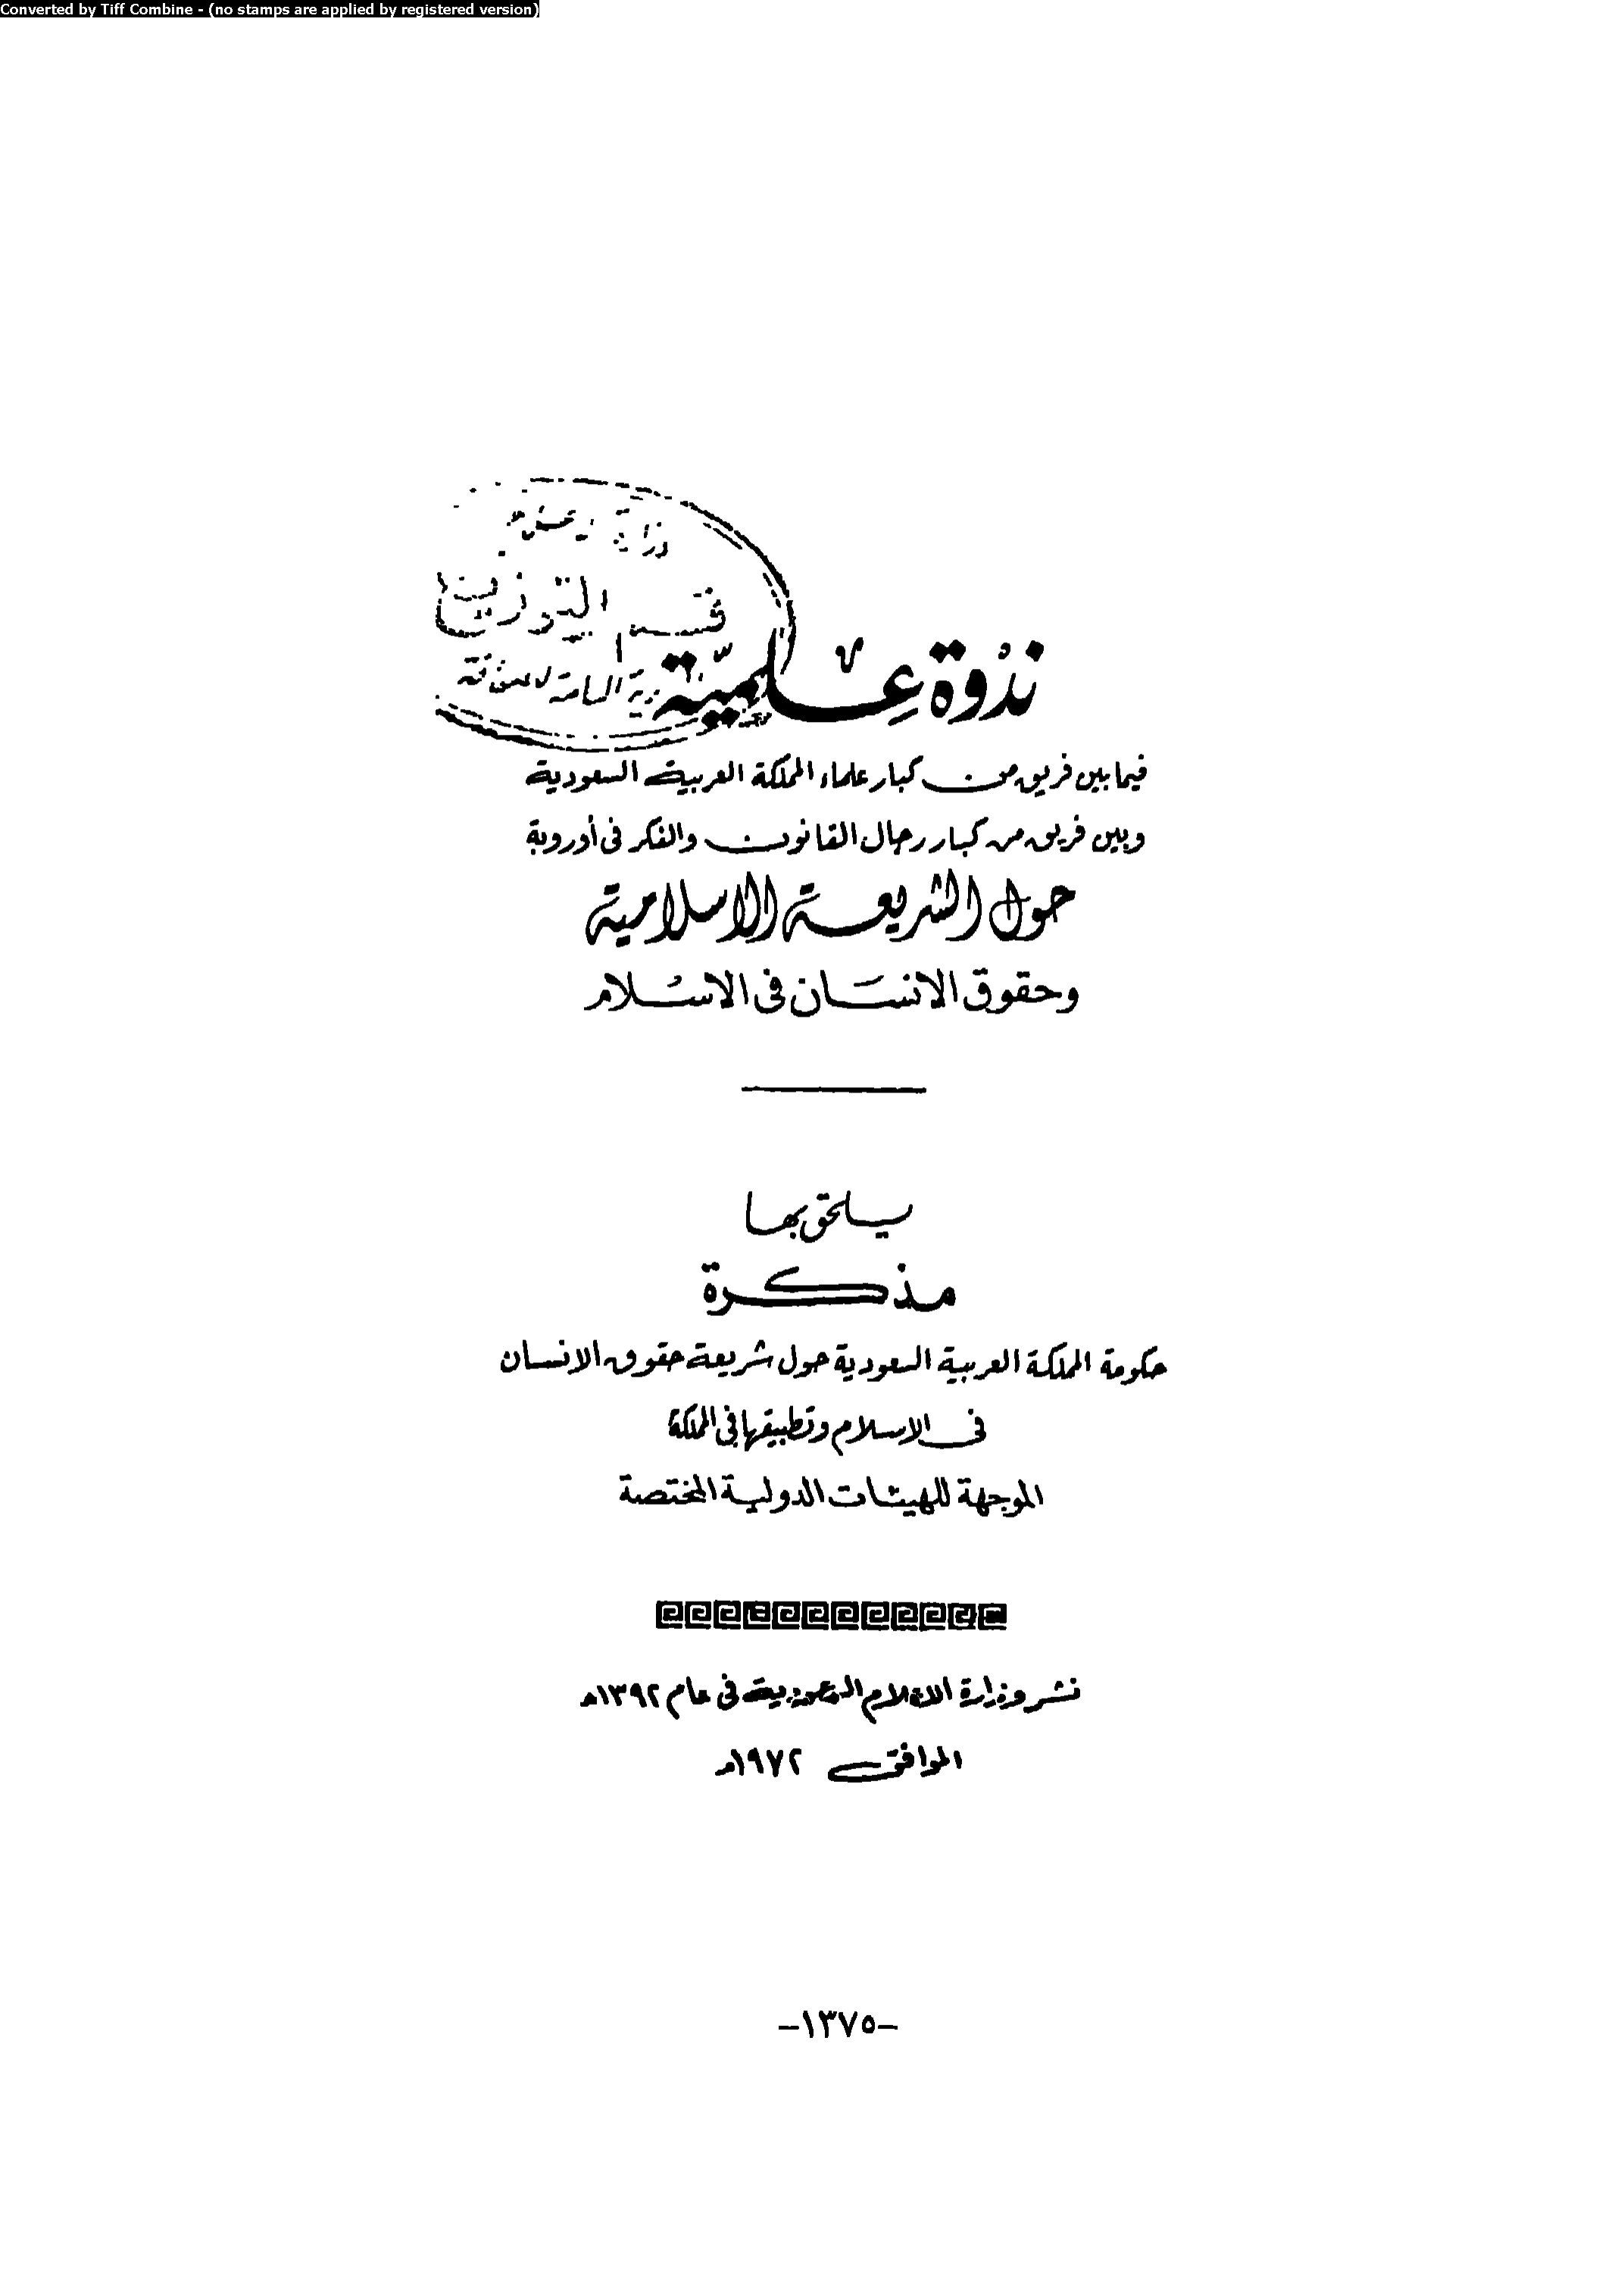 Converted by Tiff Combine - (no stamps are applied by registered version)
قسم التوزيع
ندوة علمية
فيما بين فريق من كبار علماء المملكة العربية السعودية
وبين فريق من كبار رجال القانون والفكر فى أوروبة
حول الشريعة الاسلامية
وحقوق الانسان فى الاسلام
يلحق بها
مذكرة
حكومة المملكة العربية السعودية حول شريعة حقوق الانسان
فى الاسلام وتطبيقها فى المملكة
الموجهة للهيئات الدولية المختصة
نشر وزارة الاعلام السعودية فى عام ١٣٩٢هـ
الموافق ١٩٧٢م
-١٣٧٥-